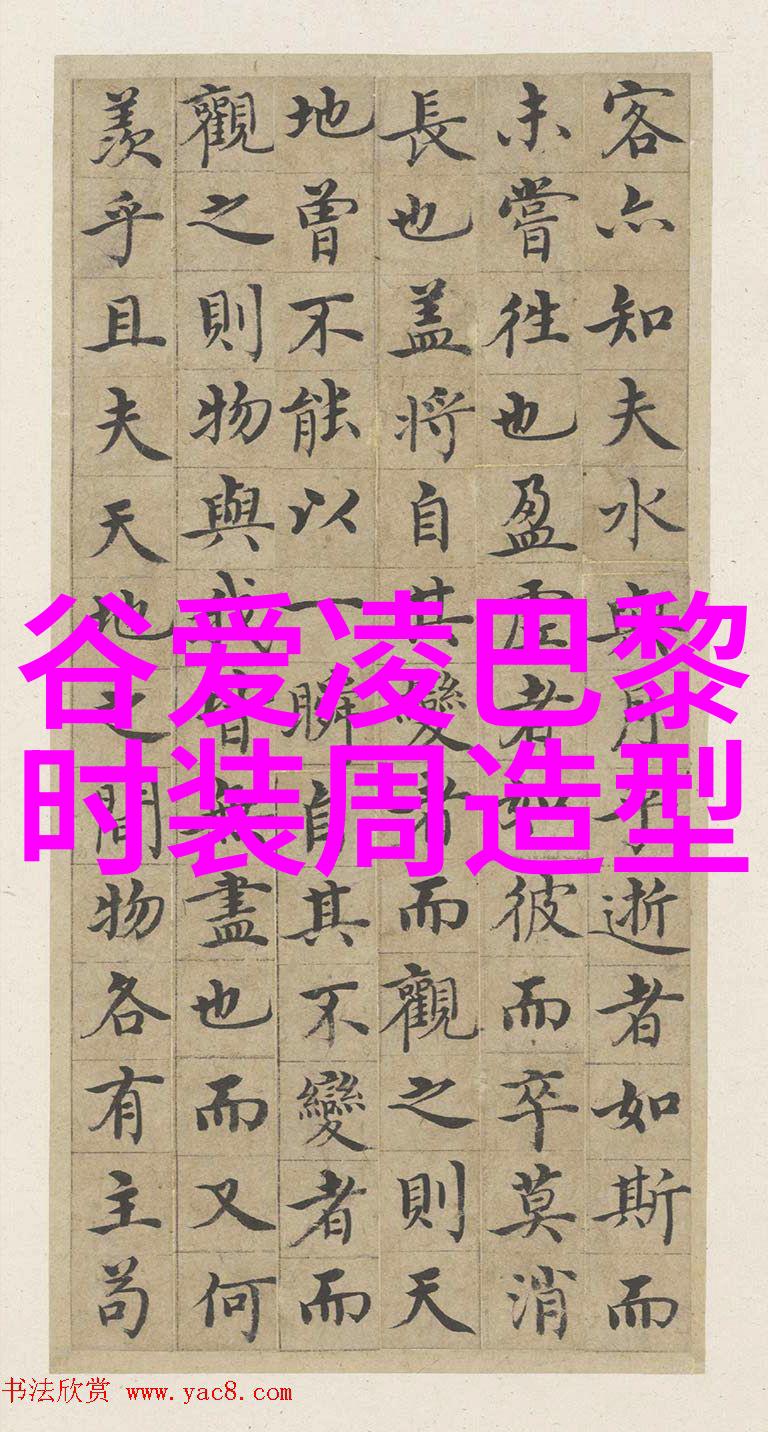 客亦知夫水與月乎逝者如斯而
未嘗往也盈虛者如彼而卒莫消
長也蓋將自其變者而觀之則天
地曾不能以一瞬自其不變者而
觀之則物與我皆無盡也而又何
羨乎且夫天地之間物各有主苟
谷爱凌巴黎
时装周造型
书法欣赏 www.yac8.com